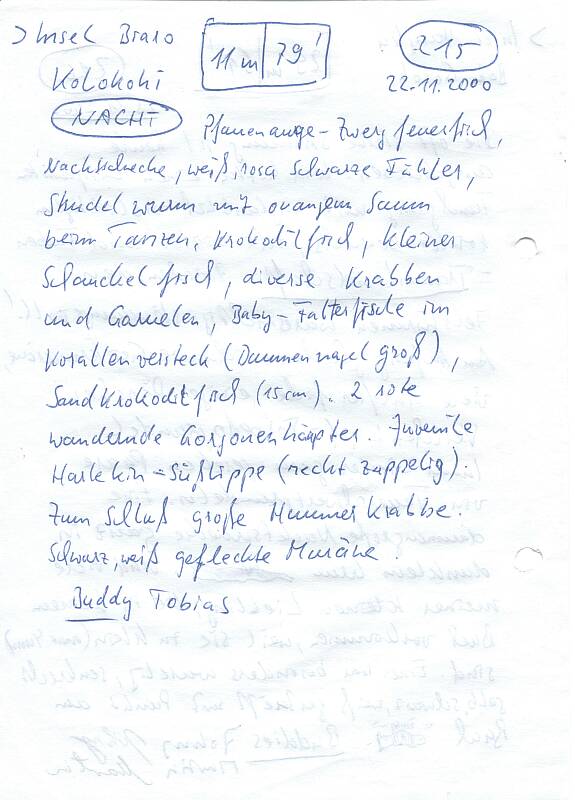 > Insel Biaro
11m | 79'
215
Kolokohi
22.11.2000
NACHT
Pfauenauge-Zwergfeuerfisch,
Nacktschnecke, weiß, rosa schwarze Fühler,
Strudelwurm mit orangem Saum
beim Tanzen, Krokodilfisch, kleiner
Schaukelfisch, diverse Krabben
und Garnelen, Baby-Falterfische im
Korallenversteck (Daumennagel groß),
Sandkrokodilfisch (15cm). 2 rote
wandernde Gorgonenhäupter. Juvenile
Harlekin-Süßlippe (recht zappelig).
Zum Schluß große Hummerkrabbe.
Schwarz, weiß gefleckte Muräne.
Buddy Tobias